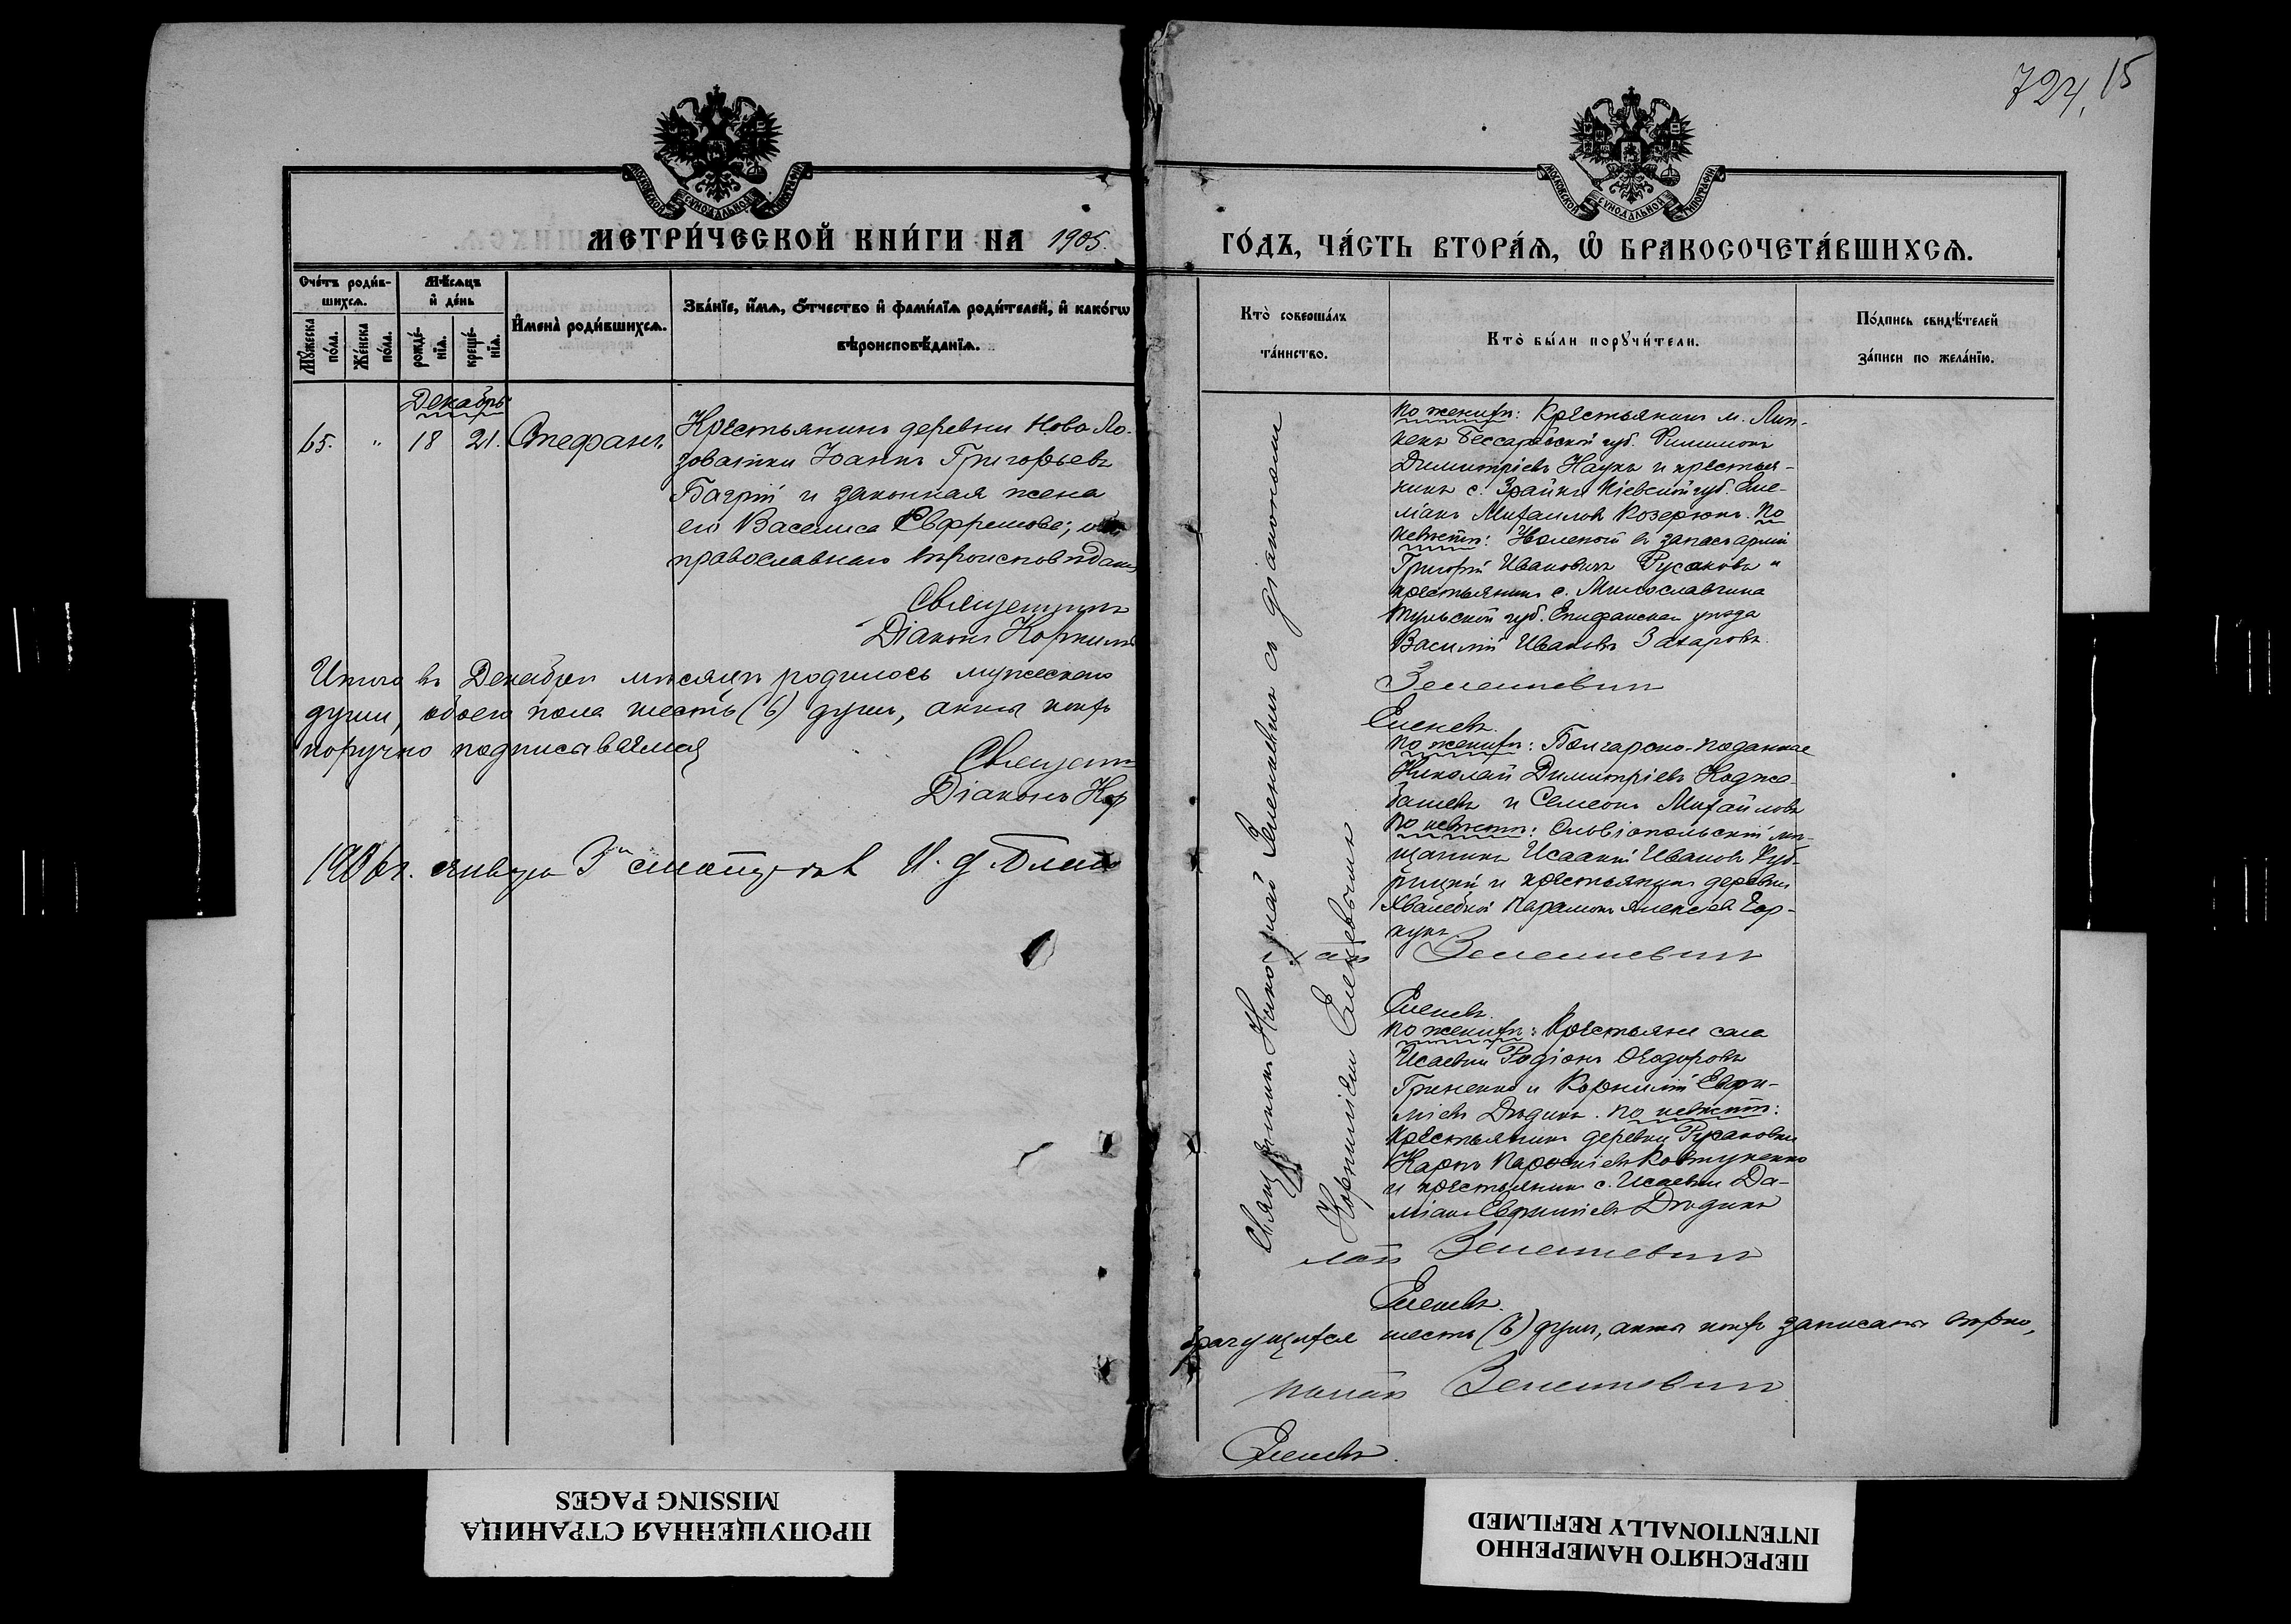 724, 15
МОСКОВСКОЙ СУНОДАЛЬНОЙ ТИПОГРАФИИ
МЕТРИ́ЧЕСКОЙ КНИ́ГИ НА 1905.
Сче́тъ роди́в-
шихся.
Му́жеска
по́ла.
Же́нска
по́ла.
Мѣ́сяцъ
и де́нь
рожде́-
нїя.
креще́-
нїя.
Имена̀ роди́вшихся.
Зва́нїе, и́мя, о́тчество и фами́лїя роди́телей, и како́гѡ
вѣроисповѣ́данїя.
Декабрь
65. " 18 21. Стефанъ.
Крестьянинъ деревни Ново Ло-
зоватки Іоаннъ Григорьевъ
Багрій и законная жена
его Василиса Евфремова;
православнаго вѣроисповѣдан
Священник
Діаконъ Корнилі
Итого въ Декабрѣ мѣсяцѣ родилось мужескаго
души, обоего пола шесть (6) душъ, акты коихъ
поручно подписываемся
Священ
Діаконъ Кор
1906 г. января 3
МОСКОВСКОЙ СУНОДАЛЬНОЙ ТИПОГРАФИИ
ГО́ДЪ, ЧА́СТЬ ВТОРА́Я, Ѡ БРАКОСОЧЕТА́ВШИХСЯ.
Кто̀ соверша́лъ
та́инство.
Кто̀ бы́ли порꙋчи́тели.
По́дпись свидѣ́телей
за́писи по жела́нїю.
Священникъ Николай Зеленкевичъ съ діакономъ
Корниліемъ Еленевымъ
по женихѣ: Крестьянинъ м. Лип-
канъ Бессарабской губ. Филимонъ
Димитріевъ Наукъ и крестья-
нинъ с. Зрайки Кіевской губ. Еме-
ліанъ Михаиловъ Козерюкъ. По
невѣстѣ: въ запасъ арміи
Григорій Ивановичъ Русаковъ и
крестьянинъ с. Милославщина
Тульской губ. Епифанскаго уѣзда
Василій Ивановъ Захаровъ.
Еленевъ.
по женихѣ: Болгарско-поданные
Николай Димитріевъ Коджа-
башевъ и Симеонъ Михайловъ
по невѣстѣ: Ольвіопольскій мѣ-
щанинъ Исаакій Ивановъ Руд-
ницкій и крестьянинъ деревни
Хвалебной Парамонъ Алексѣевъ Гор-
кунъ.
Еленевъ.
по женихѣ: Крестьяне села
Исаевки Родіонъ Ѳеодоровъ
Гриненко и Корнилій Евфи-
міевъ Дядикъ. по невѣстѣ:
крестьянинъ деревни Русановки
Карпъ Парѳеніевъ Ковтуненко
и крестьянинъ с. Исаевки Да-
міанъ Евфиміевъ Дядикъ
Еленевъ.
брачущихся шесть (6) душъ, акты коихъ записаны вѣрно,
Еленевъ.
ПРОПУЩЕННАЯ СТРАНИЦА
MISSING PAGES
ПЕРЕСНЯТО НАМЕРЕННО
INTENTIONALLY REFILMED